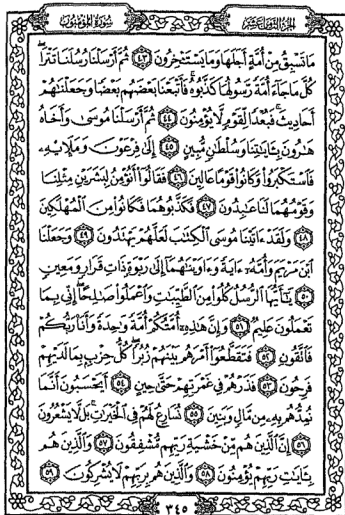 الجزء الثامن عشر
سورة المؤمنون
مَا تَسْبِقُ مِنْ أُمَّةٍ أَجَلَهَا وَمَا يَسْتَـْٔخِرُونَ ٤٣ ثُمَّ أَرْسَلْنَا رُسُلَنَا تَتْرَا
كُلَّ مَا جَآءَ أُمَّةً رَّسُولُهَا كَذَّبُوهُ فَأَتْبَعْنَا بَعْضَهُم بَعْضًا وَجَعَلْنَٰهُمْ
أَحَادِيثَ فَبُعْدًا لِّقَوْمٍ لَّا يُؤْمِنُونَ ٤٤ ثُمَّ أَرْسَلْنَا مُوسَىٰ وَأَخَاهُ
هَٰرُونَ بِـَٔايَٰتِنَا وَسُلْطَٰنٍ مُّبِينٍ ٤٥ إِلَىٰ فِرْعَوْنَ وَمَلَإِي۟هِۦ
فَٱسْتَكْبَرُوا۟ وَكَانُوا۟ قَوْمًا عَالِينَ ٤٦ فَقَالُوٓا۟ أَنُؤْمِنُ لِبَشَرَيْنِ مِثْلِنَا
وَقَوْمُهُمَا لَنَا عَٰبِدُونَ ٤٧ فَكَذَّبُوهُمَا فَكَانُوا۟ مِنَ ٱلْمُهْلَكِينَ
٤٨ وَلَقَدْ ءَاتَيْنَا مُوسَى ٱلْكِتَٰبَ لَعَلَّهُمْ يَهْتَدُونَ ٤٩ وَجَعَلْنَا
ٱبْنَ مَرْيَمَ وَأُمَّهُۥٓ ءَايَةً وَءَاوَيْنَٰهُمَآ إِلَىٰ رَبْوَةٍ ذَاتِ قَرَارٍ وَمَعِينٍ
٥٠ يَٰٓأَيُّهَا ٱلرُّسُلُ كُلُوا۟ مِنَ ٱلطَّيِّبَٰتِ وَٱعْمَلُوا۟ صَٰلِحًا إِنِّى بِمَا
تَعْمَلُونَ عَلِيمٌ ٥١ وَإِنَّ هَٰذِهِۦٓ أُمَّتُكُمْ أُمَّةً وَٰحِدَةً وَأَنَا۠ رَبُّكُمْ
فَٱتَّقُونِ ٥٢ فَتَقَطَّعُوٓا۟ أَمْرَهُم بَيْنَهُمْ زُبُرًا كُلُّ حِزْبٍۭ بِمَا لَدَيْهِمْ
فَرِحُونَ ٥٣ فَذَرْهُمْ فِى غَمْرَتِهِمْ حَتَّىٰ حِينٍ ٥٤ أَيَحْسَبُونَ أَنَّمَا
نُمِدُّهُم بِهِۦ مِن مَّالٍ وَبَنِينَ ٥٥ نُسَارِعُ لَهُمْ فِى ٱلْخَيْرَٰتِ بَل لَّا يَشْعُرُونَ
٥٦ إِنَّ ٱلَّذِينَ هُم مِّنْ خَشْيَةِ رَبِّهِم مُّشْفِقُونَ ٥٧ وَٱلَّذِينَ هُم
بِـَٔايَٰتِ رَبِّهِمْ يُؤْمِنُونَ ٥٨ وَٱلَّذِينَ هُم بِرَبِّهِمْ لَا يُشْرِكُونَ ٥٩
٣٤٥